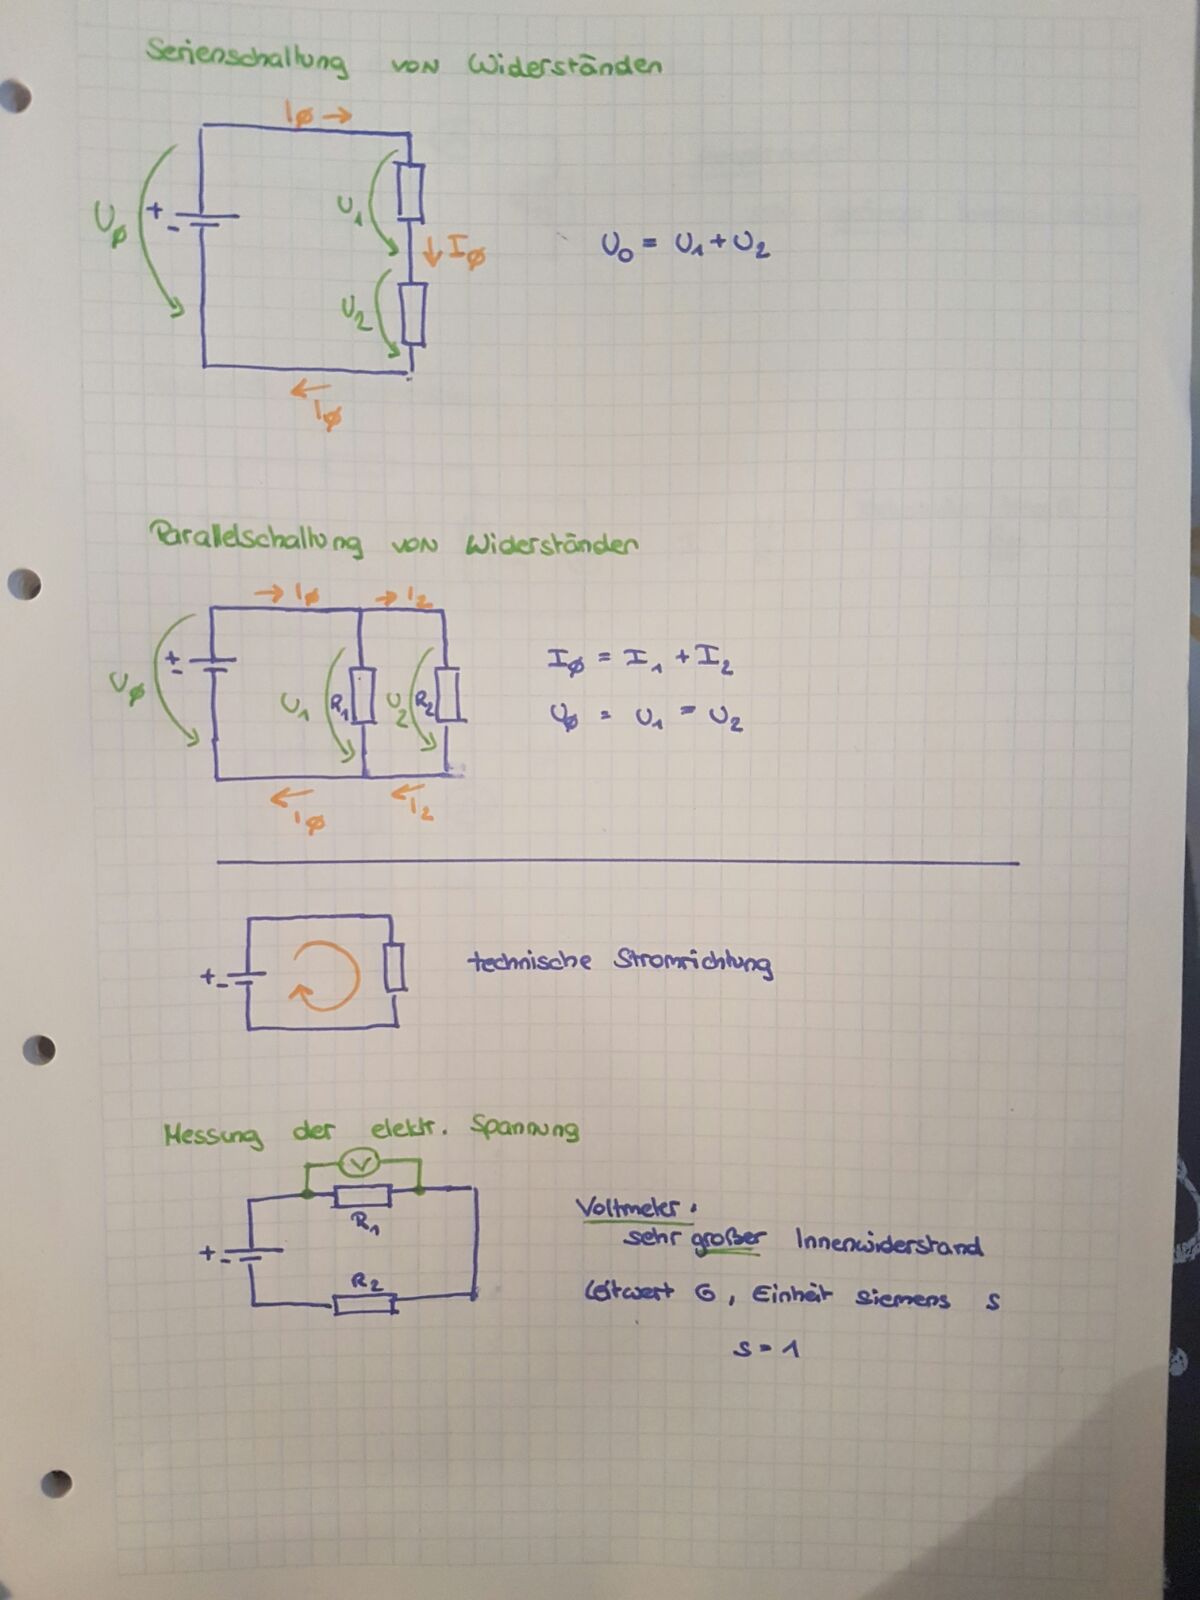 Serienschaltung von Widerständen
IØ →
UØ
+
-
U1
↓ IØ
U0 = U1 + U2
U2
←
IØ
Parallelschaltung von Widerständen
→ IØ → I2
UØ
+
-
U1 R1 U2 R2
IØ = I1 + I2
UØ = U1 = U2
← IØ ← I2
+
-
technische Stromrichtung
Messung der elektr. Spannung
V
R1
+
-
R2
Voltmeter.
sehr großer Innenwiderstand
Leitwert G, Einheit Siemens S
S = 1